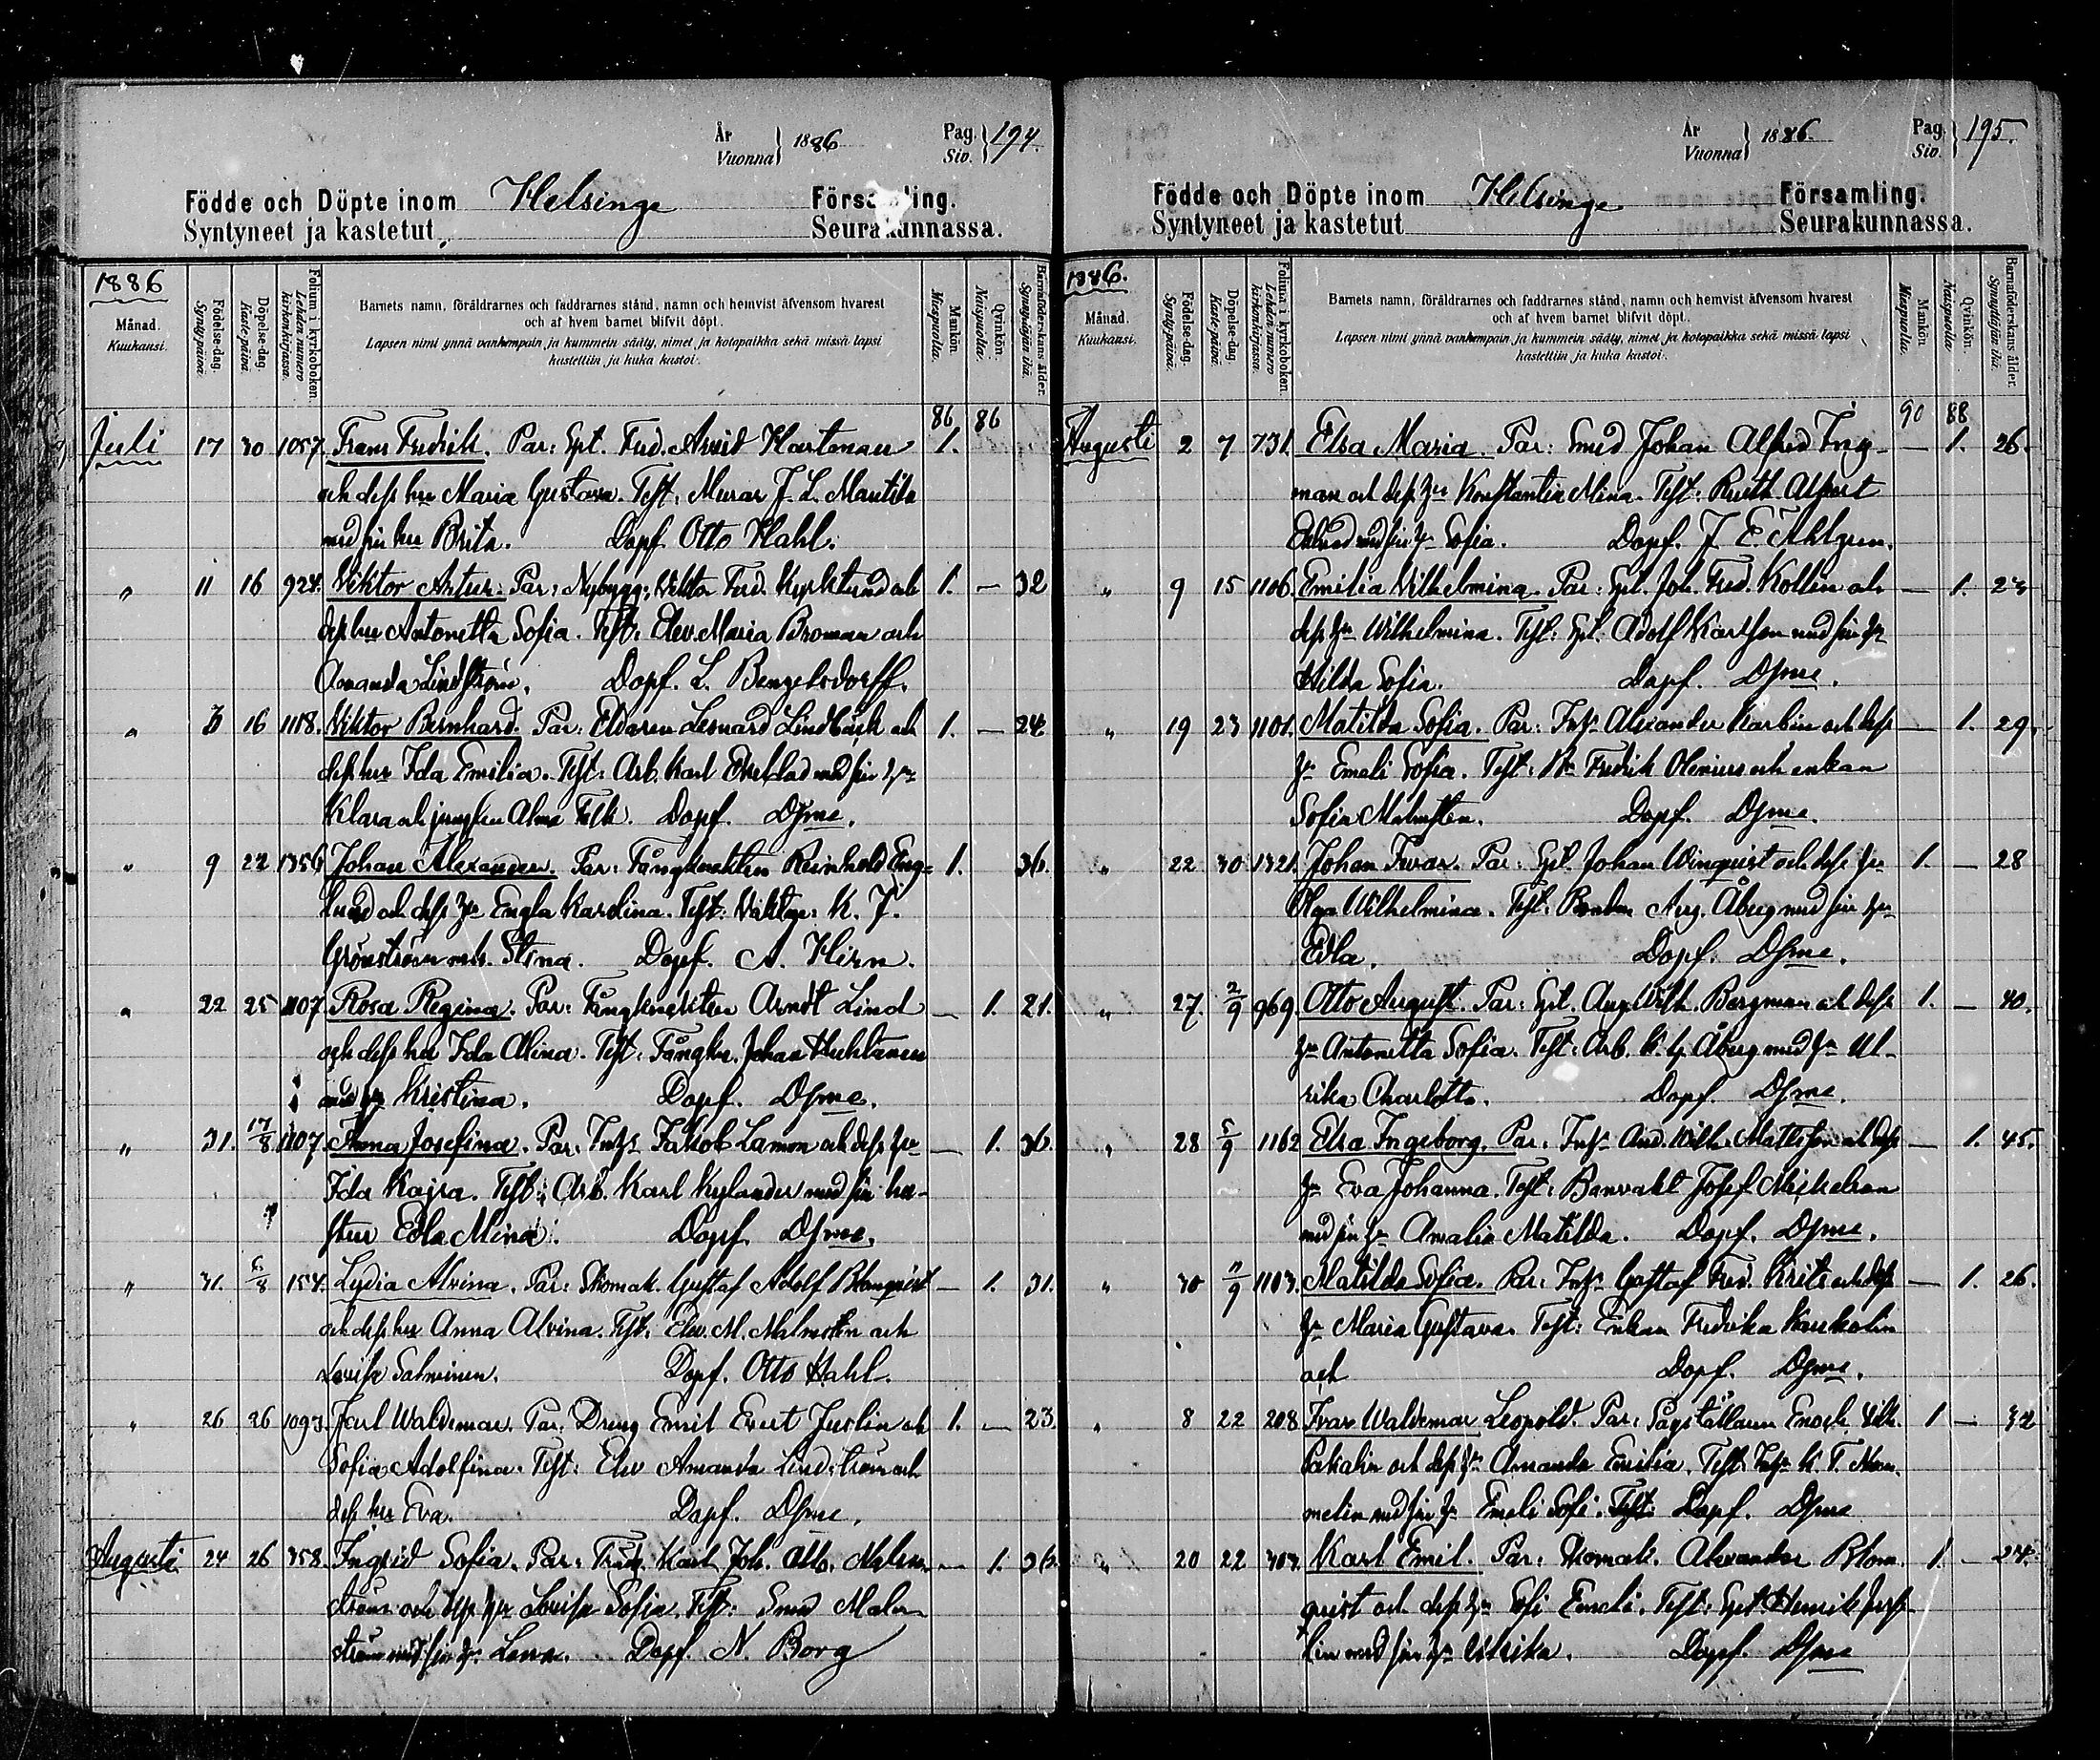 År
Vuonna } 1886 Pag.
Siv. } 194.
Födde och Döpte inom Helsinge Församling.
Syntyneet ja kastetut Seurakunnassa.
1886
Månad.
Kuukausi.
Födelse-dag.
Syntypäivä.
Döpelse-dag.
Kastepäivä.
Folium i kyrkoboken.
Lehden numero kirkonkirjassa.
Barnets namn, föräldrarnes och faddrarnes stånd, namn och hemvist äfvensom hvarest
och af hvem barnet blifvit döpt.
Lapsen nimi ynnä vanhempain ja kummein sääty, nimet ja kotopaikka sekä missä lapsi
kastettiin ja kuka kastoi.
Mankön.
Miespuolia.
Qvinkön.
Naispuolia.
Barnaföderskans ålder.
Synnyttäjän ikä.
86 86
Juli 17 30 1057. Frans Fredrik. Par: Spt. Fred. Arvid Hartman 1.
och dess hu Maria Gustava. Test: Murar J. L. Mantila
med sin hu Brita. Döpf. Otto Hahl.
" 11 16 924. Viktor Artur. Par: Nybygg: Viktor Ferd. Kyrklund och 1. — 32
dess hu Antonetta Sofia. Test: Elev. Maria Broman och
Amanda Lindström. Döpf. L. Bengelsdorff.
" 16 1118. Viktor Bernhard. Par: Eldaren Leonard Lindbäck och 1. — 24.
dess hu Ida Emilia. Test: Arb. Karl Ekeblad med sin hu
Klara och jungfru Alma Falk. Döpf. Dsme.
" 9 22 1356 Johan Alexander. Par: Fångknekten Reinhold Eng- 1. 36.
lund och dess hu Engla Karolina. Test: K. J.
Grönström och Stina. Döpf. A. Hirn.
" 22 25 1107. Rosa Regina. Par: Fångknekten Arndt Lind — 1. 21.
och dess hu Ida Alina. Test: Fångkn. Johan Huhtanen
med hu Kristina. Döpf. Dsme.
" 31. 17/8 1107. Anna Josefina. Par: Inhs Jakob Lamon och dess hu — 1. 36.
Ida Kajsa. Test: Arb. Karl Kylander med sin hu-
stru Edla Mina. Döpf. Dsme.
" 31. 6/8 154. Lydia Alvina. Par: Skomak. Gustaf Adolf Blomqvist — 1. 31.
och dess hu Anna Alvina. Test: Elev. M. Malmsten och
Lovisa Salminen. Döpf. Otto Hahl.
" 26 26 1093. Jarl Waldemar. Par: Dreng Emil Evert Juslin och 1. — 23.
Sofia Adolfina. Test: Elev Amanda Lindström och
dess hu Eva. Döpf. Dsme.
Augusti 24 26 358. Ingrid Sofia. Par: Karl Joh. Otto Malm- — 1. 36.
ström och dess hu Lovisa Sofia. Test: Smed Malm-
ström med sin hu Lovisa. Döpf. N. Borg
År
Vuonna } 1886. Pag.
Siv. } 195.
Födde och Döpte inom Helsinge Församling.
Syntyneet ja kastetut Seurakunnassa.
1886.
Månad.
Kuukausi.
Födelse-dag.
Syntypäivä.
Döpelse-dag.
Kastepäivä.
Folium i kyrkoboken.
Lehden numero kirkonkirjassa.
Barnets namn, föräldrarnes och faddrarnes stånd, namn och hemvist äfvensom hvarest
och af hvem barnet blifvit döpt.
Lapsen nimi ynnä vanhempain ja kummein sääty, nimet ja kotopaikka sekä missä lapsi
kastettiin ja kuka kastoi.
Mankön.
Miespuolia.
Qvinkön.
Naispuolia.
Barnaföderskans ålder.
Synnyttäjän ikä.
90 88
Augusti 2 7 731. Elsa Maria. Par: Smed Johan Alfred Ing- — 1. 26.
man och dess hu Konstantia Mina. Test:
Eklund med sin hu Sofia. Döpf. J. E. Ahlgren.
" 9 15 1106. Emilia Vilhelmina. Par: Spt. Joh. Fred. Kollin och — 1. 23
dess hu Wilhelmina. Test: Spt. Adolf Karlsson med sin hu
Hilda Sofia. Döpf. Dsme.
" 19 23 1101. Matilda Sofia. Par: Inhs Alexander Karbin och dess — 1. 29.
hu Emeli Sofia. Test: Fredrik Olenius och enkan
Sofia Malmsten. Döpf. Dsme.
" 22 30 1321. Johan Ivar. Par: Spt. Johan Winqvist och dess hu 1. — 28
Olga Wilhelmina. Test: Bonden Aug. Åberg med sin hu
Edla. Döpf. Dsme.
" 27. 2/9 969. Otto August. Par: Spt. Aug. Wilh. Bergman och dess 1. — 40.
hu Antonetta Sofia. Test: Arb. K. G. Åberg med hu Ul-
rika Charlotta. Döpf. Dsme.
" 28 5/9 1162 Elsa Ingeborg. Par: Inhs And. Wilh. Mattsson och dess — 1. 45.
hu Eva Johanna. Test: Banvakt Josef Michelson
med sin hu Amalia Matilda. Döpf. Dsme.
" 30 11/9 1103. Matilda Sofia. Par: Inhs Gustaf Fred. Krits och dess — 1. 26.
hu Maria Gustava. Test: Enkan Fredrika Kaukolin
och Döpf. Dsme.
" 8 22 208. Ivar Waldemar Leopold. Par: Enoch Vilh. 1 — 32
Pakalin och dess hu Amanda Emilia. Test: Inhs K. T. Nom-
melin med sin hu Emeli Sofi. Test: Döpf. Dsme
" 20 22 303. Karl Emil. Par: Skomak. Alexander Blom- 1. — 24.
qvist och dess hu Sofi Emeli. Test: Spt. Henrik
lin med sin hu Ulrika. Döpf. Dsme